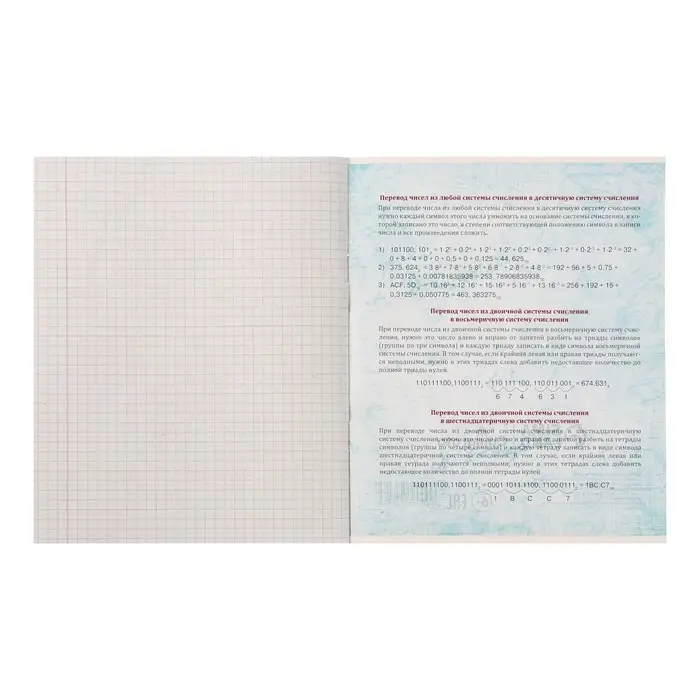 Перевод чисел из любой системы счисления в десятичную систему счисления
При переводе числа из любой системы счисления в десятичную систему счисления
нужно каждый символ этого числа умножить на основание системы счисления, в ко-
торой записано это число, в степени соответствующей положению символа в записи
числа и все произведения сложить.
1) 101100, 101₂ = 1·2⁵ + 0·2⁴ + 1·2³ + 1·2² + 0·2¹ + 0·2⁰ + 1·2⁻¹ + 0·2⁻² + 1·2⁻³ = 32 +
+ 0 + 8 + 4 + 0 + 0 + 0,5 + 0 + 0,125 = 44, 625₁₀
2) 375, 624₈ = 3·8² + 7·8¹ + 5·8⁰ + 6·8⁻¹ + 2·8⁻² + 4·8⁻³ = 192 + 56 + 5 + 0,75 +
0,03125 + 0,00781835938 = 253, 78906835938₁₀
3) ACF, 5D₁₆ = 10·16² + 12·16¹ + 15·16⁰ + 5·16⁻¹ + 13·16⁻² = 256 + 192 + 15 +
0,3125 + 0,050775 = 463, 363275₁₀
Перевод чисел из двоичной системы счисления
в восьмеричную систему счисления
При переводе числа из двоичной системы счисления в восьмеричную систему счис-
ления, нужно это число влево и вправо от запятой разбить на триады символов
(группы по три символа) и каждую триаду записать в виде символа восьмеричной
системы счисления. В том случае, если крайняя левая или правая триады получают-
ся неполными, нужно в этих триадах слева добавить недостающее количество до
полной триады нулей.
110111100,1100111₂ = 110 111 100, 110 011 001₂ = 674.631₈
6 7 4 6 3 1
Перевод чисел из двоичной системы счисления
в шестнадцатеричную систему счисления
При переводе числа из двоичной системы счисления в шестнадцатеричную
систему счисления, нужно это число влево и вправо от запятой разбить на тетрады
символов (группы по четыре символа) и каждую тетраду записать в виде символа
шестнадцатеричной системы счисления. В том случае, если крайняя левая или
правая тетрада получаются неполными, нужно в этих тетрадах слева добавить
недостающее количество до полной тетрады нулей
110111100,1100111₂ = 0001 1011 1100, 1100 0111₂ = 1BC.C7₁₆
1 B C C 7